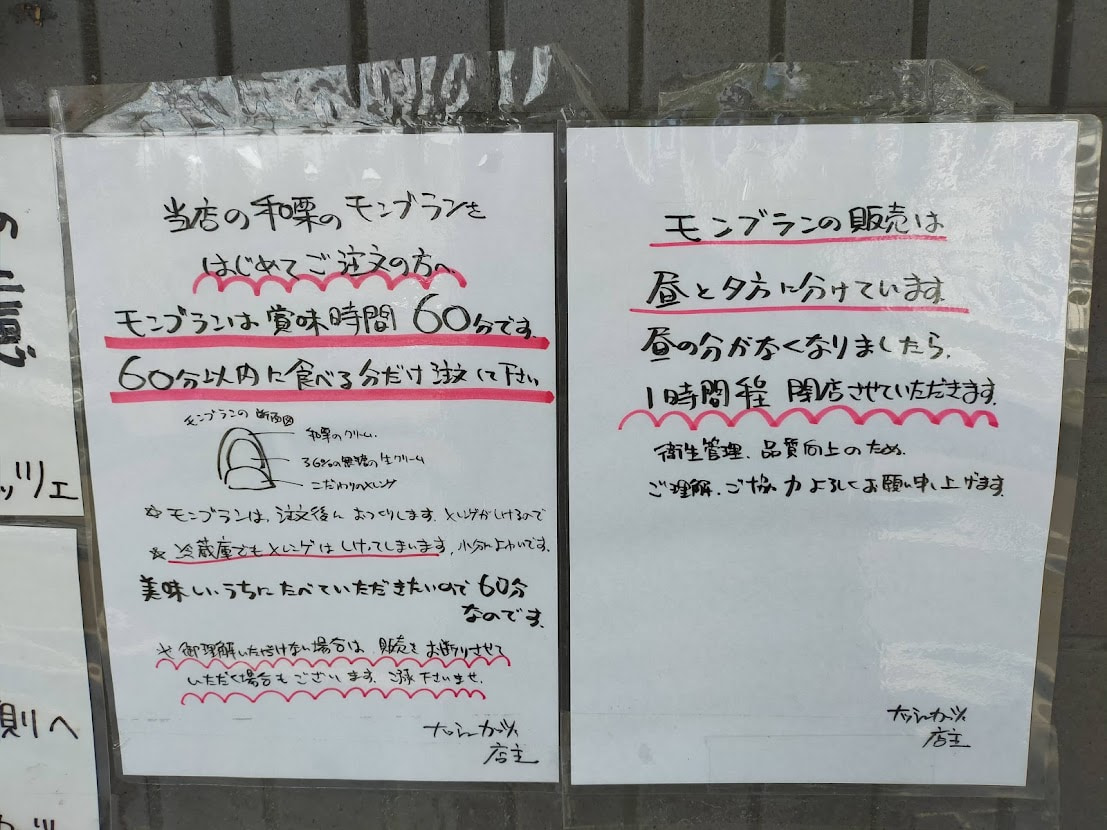 当店の和栗のモンブランを
はじめてご注文の方へ
モンブランは賞味時間60分です.
60分以内に食べる分だけ注文して下さい
モンブランの断面図
和栗のクリーム.
36%の無糖の生クリーム
こだわりのメレンゲ
☆モンブランは、注文後に おつくりします. メレンゲがしけるので
☆冷蔵庫でもメレンゲはしけってしまいます. 水分によわいです.
美味しいうちにたべていただきたいので60分
なのです.
※御理解いただけない場合は、販売をお断りさせて
いただく場合もございます. ご了承下さいませ.
店主
モンブランの販売は
昼と夕方に分けています.
昼の分がなくなりましたら、
1時間程 閉店させていただきます.
衛生管理、品質向上のため、
ご理解、ご協力よろしくお願い申し上げます.
店主
の
ッツェ
側へ